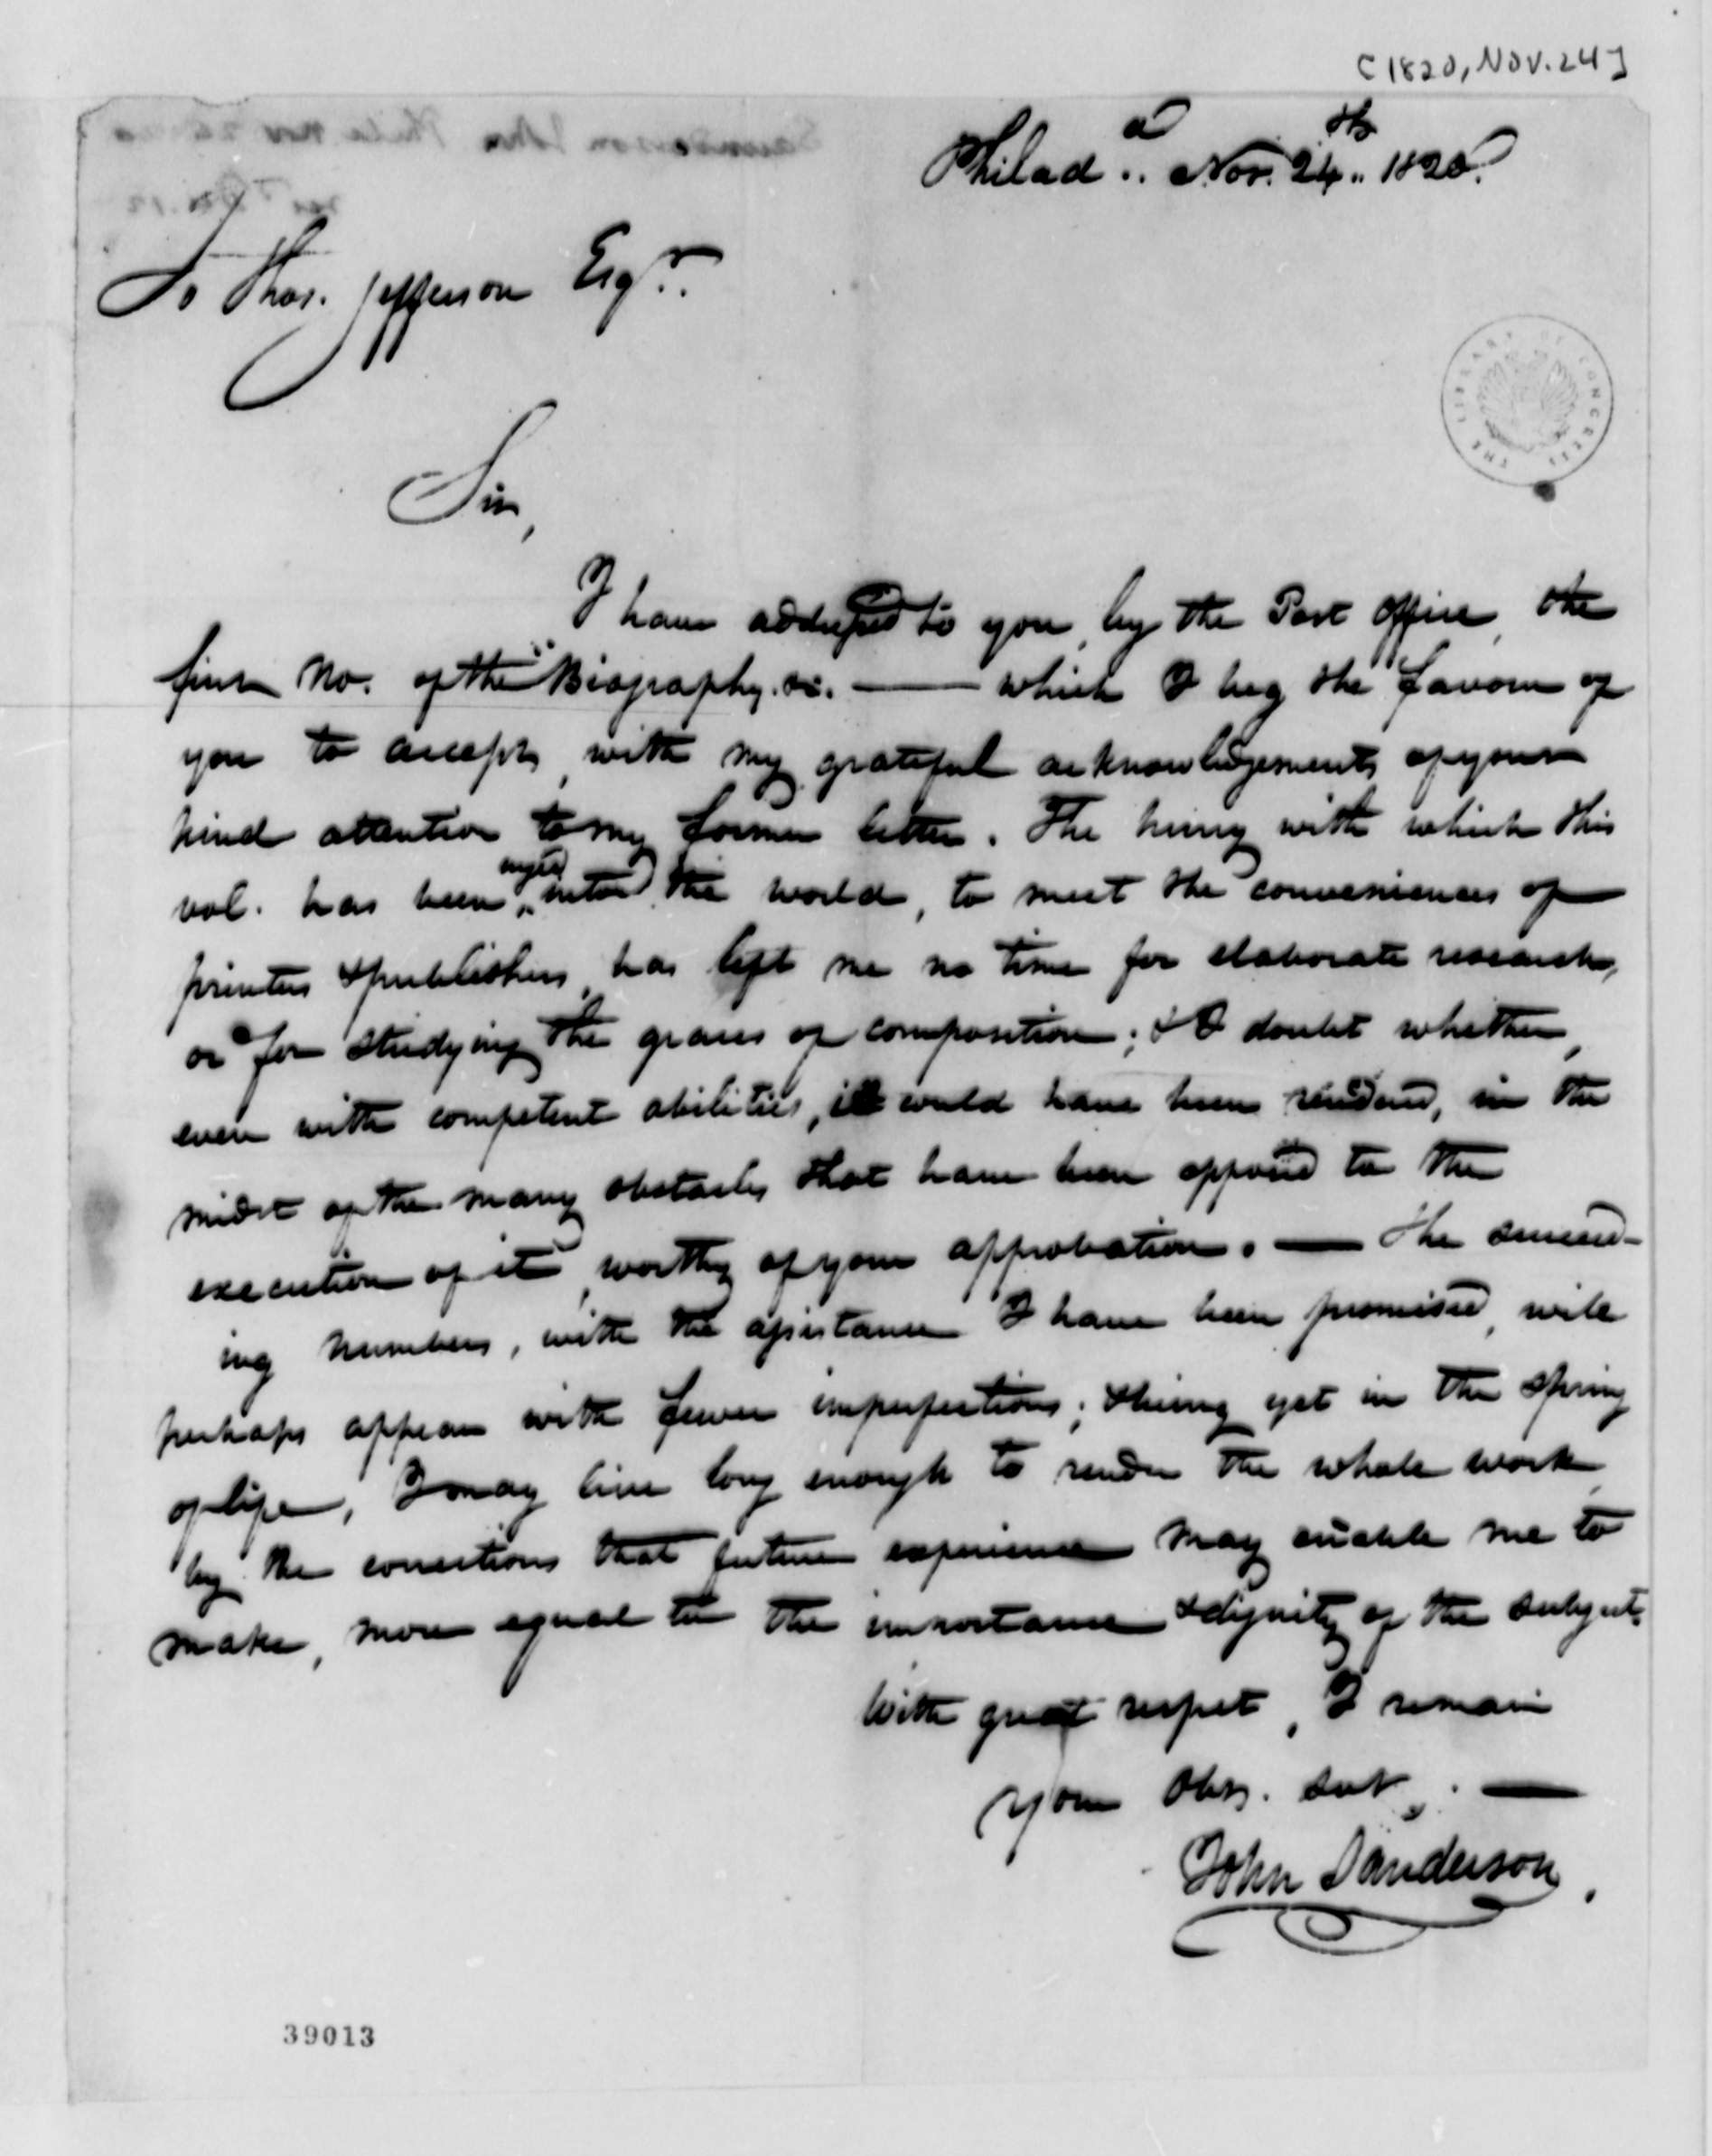 [1820, Nov. 24]
Philada.. Nov. 24th.. 1820.
To Thos. Jefferson Esqr..
THE LIBRARY OF CONGRESS
Sir,
I have addressed to you, by the Post office, the
first No. of the "Biography &c. — which I beg the favour of
you to accept, with my grateful acknowledgements of your
kind attention to my former letter. The hurry with which this
vol. has been urged into the world, to meet the conveniences of
printers & publishers, has left me no time for elaborate research,
or for studying the graces of composition; & I doubt whether,
even with competent abilities, it could have been rendered, in the
midst of the many obstacles that have been opposed to the
execution of it, worthy of your approbation. — The succeed-
ing numbers, with the assistance I have been promised, will
perhaps appear with fewer imperfections; & being yet in the spring
of life, I may live long enough to render the whole work,
by the corrections that future experience may enable me to
make, more equal to the importance & dignity of the subject.
With great respect, I remain
your Obt. Svt. —
John Sanderson.
39013